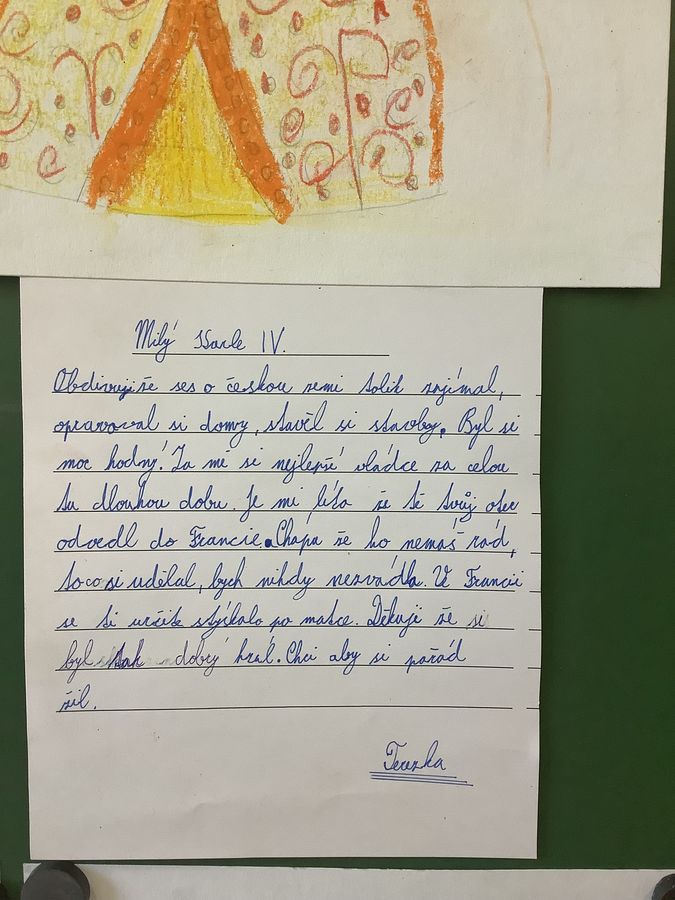 Milý Karle IV.
Obdivuji že ses o českou zemi tolik zajímal,
opravoval si domy, stavěl si stavby. Byl si
moc hodný! Za mě si nejlepší vládce za celou
tu dlouhou dobu. Je mi líto že tě tvůj otec
odvedl do Francie. Chápu že ho nemáš rád,
to co si udělal, bych nikdy nezvádla. Ve Francii
se ti určitě stýskalo po matce. Děkuji že si
byl tak dobrý král. Chci aby si pořád
žil.
Terezka